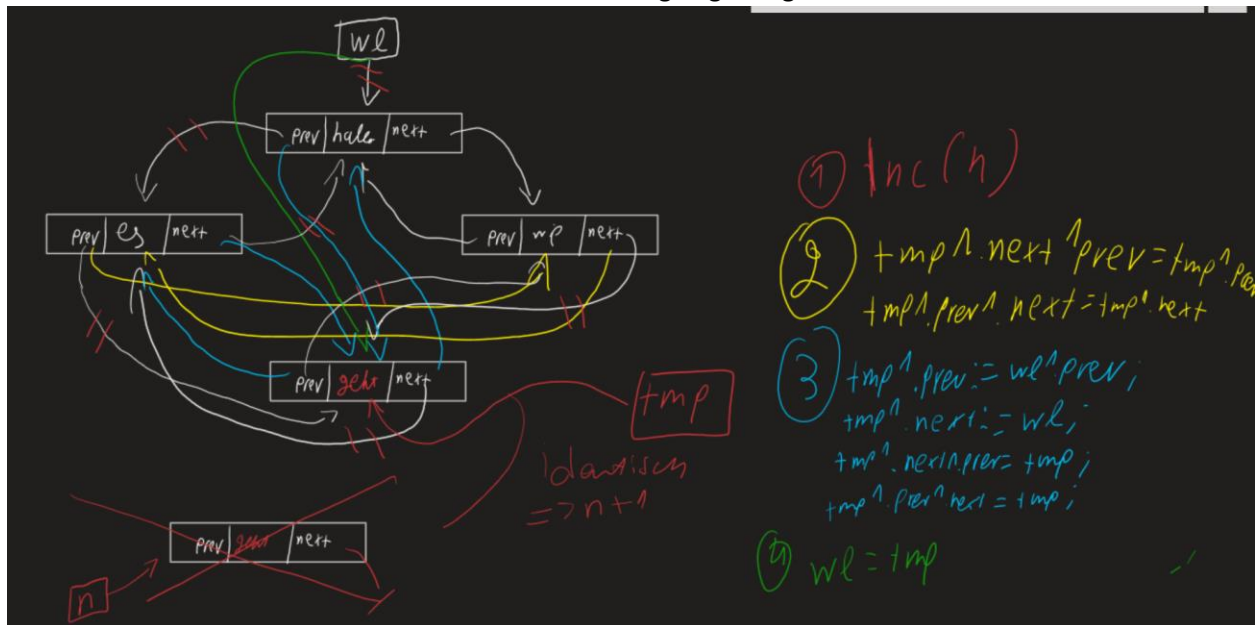 wl
prev hallo next
prev es next
prev wp next
prev geht next
tmp
Identisch
=> n+1
prev geht next
n
① Inc(n)
② tmp^.next^prev=tmp^.prev
tmp^.prev^.next=tmp^.next
③ tmp^.prev:=wl^.prev;
tmp^.next:=wl;
tmp^.next^.prev=tmp;
tmp^.prev^.next=tmp;
④ wl=tmp